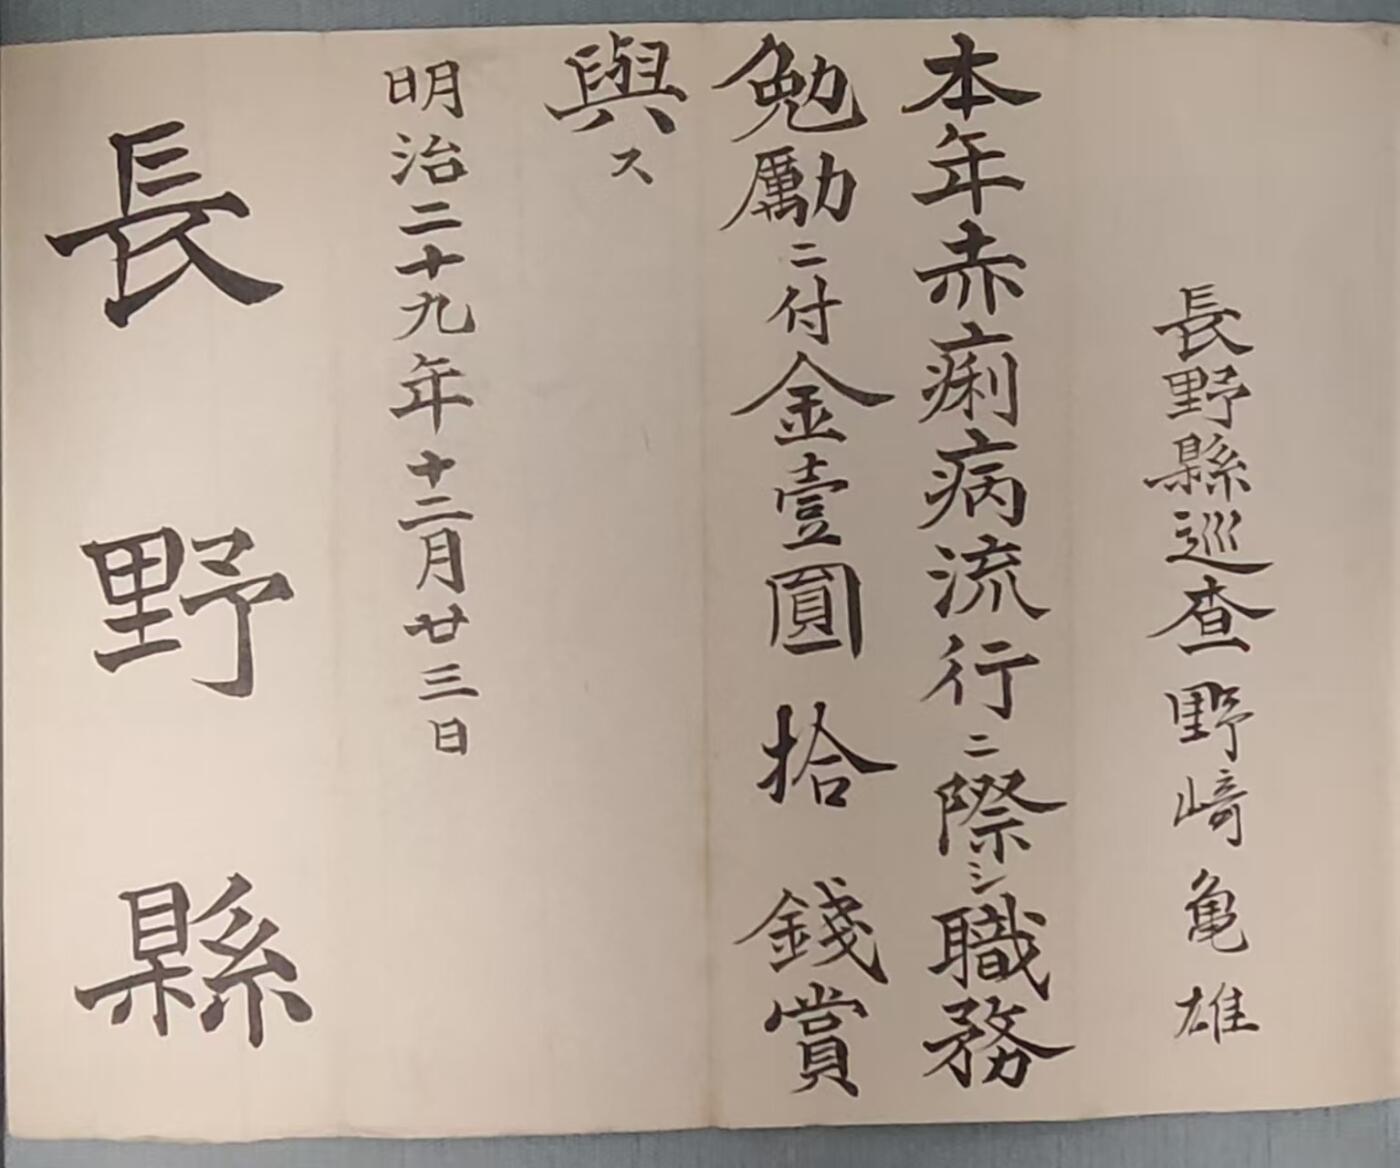 長野縣巡查野﨑亀雄
本年赤痢病流行ニ際シ職務
勉勵ニ付金壹圓拾錢賞
與ス
明治二十九年十二月廿三日
長野縣